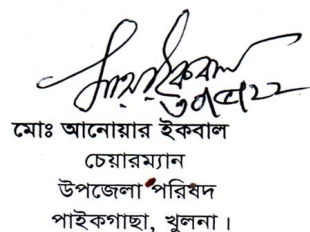 ৩০/৫/২২
মোঃ আনোয়ার ইকবাল
চেয়ারম্যান
উপজেলা পরিষদ
পাইকগাছা, খুলনা।